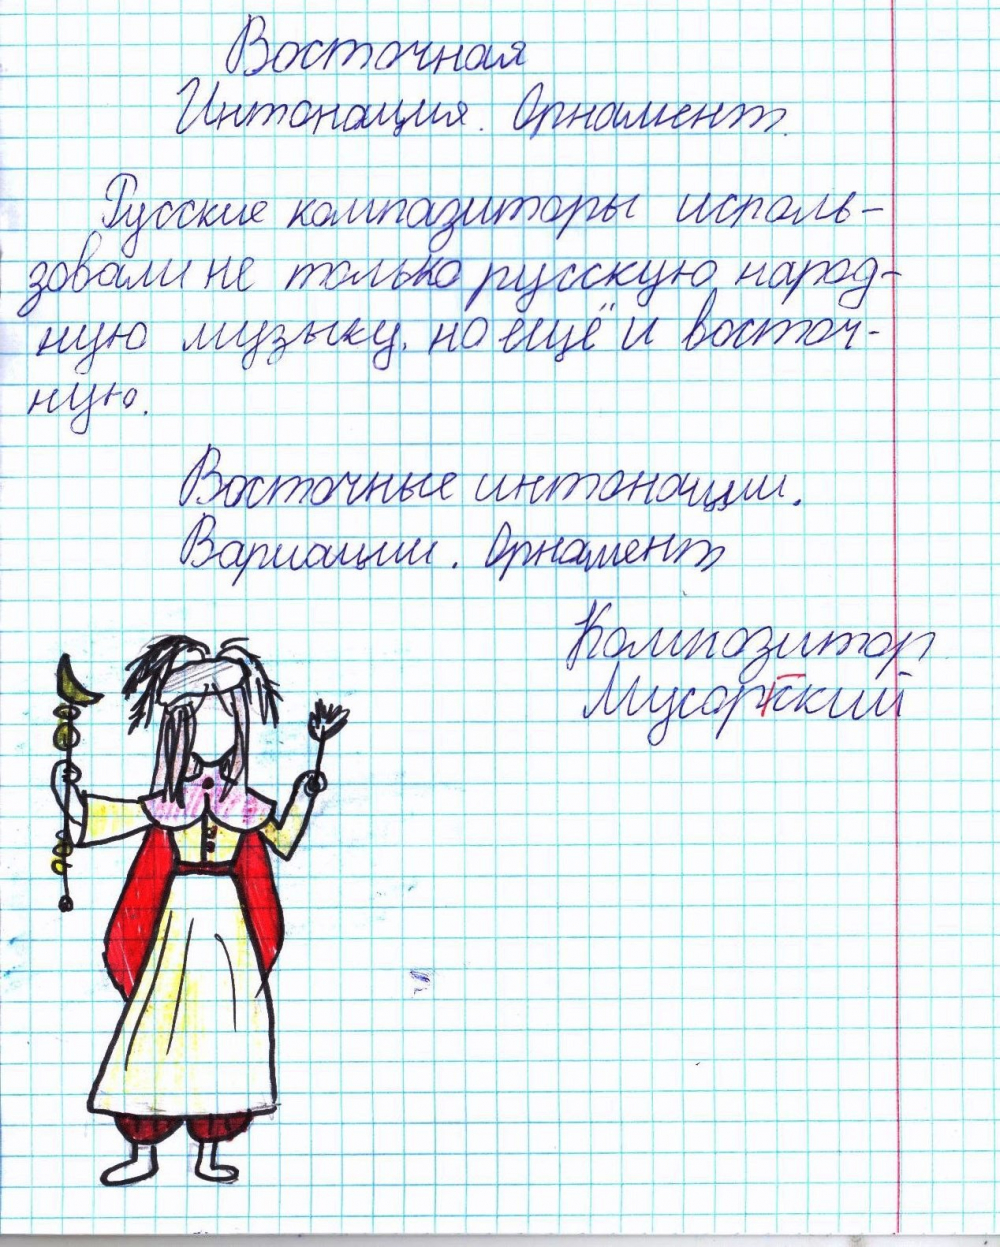 Восточная
Интонация. Орнамент.
Русские компазиторы исполь-
зовали не только русскую народ-
ную музыку, но ещё и восточ-
ную.
Восточные интонации.
Вариации. Орнамент
Композитор
Мусоргский